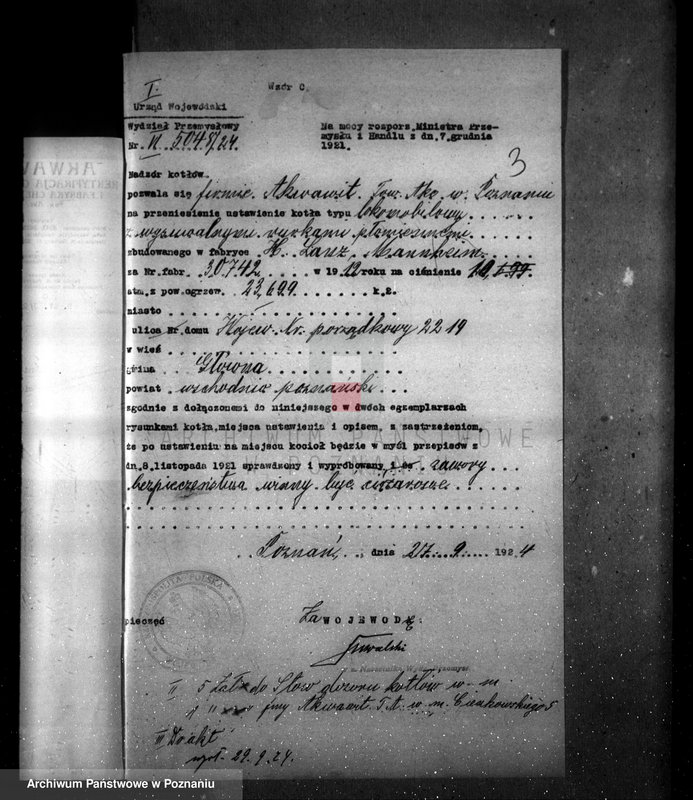 I.
Wzór C.
Urząd Wojewódski
Wydział Przemysłowy
Nr. VI. 5048/24
Na mocy rozporz. Ministra Prze-
mysłu i Handlu z dn. 7. grudnia
1921.
3
Nadzór kotłów
pozwala się firmie Akwawit Tow. Akc. w. Poznaniu
na przeniesienie ustawienie kotła typu lokomobilowy
z wysuwalnymi rurkami płomiennemi
zbudowanego w fabryce H. Lanz Mannheim
za Nr. fabr. 30742 w 1912 roku na ciśnienie 10
atm. z pow. ogrzew. 23,699 k.2.
miasto
ulica Nr. domu Kojew. Nr. porządkowy 22 19
w wieś
gmina Główna
powiat wschodnio poznański
zgodnie z dołączonemi do niniejszego w dwóch egzemplarzach
rysunkami kotła, miejsca ustawienia i opisem, z zastrzeżeniem,
że po ustawieniu na miejscu kocioł będzie w myśl przepisów z
dn. 8. listopada 1921 sprawdzony i wypróbowany i że zawory
bezpieczeństwa winny być
Poznań, dnia 27. 9. 1924
pieczęć
Za WOJEWODĘ.
Naczelnika Wydz. Przemysł.
II 5 Zał. do Stow dozoru kotłów w m.
4 " firmy Akwawit T.A. w m. 5
III Do akt
29.9.24.
ARCHIWUM PAŃSTWOWE
POZNAŃ
AKWAW
Archiwum Państwowe w Poznaniu